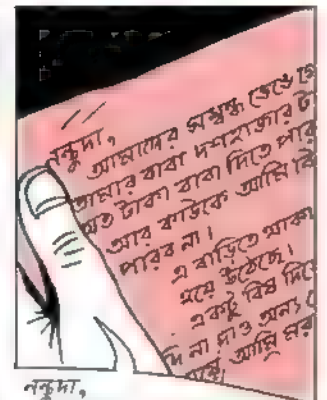 নন্তুদা,
আমাদের সম্বন্ধ ভেঙে গে
তোমার বাবা দশহাজার টা
অত টাকা বাবা দিতে পার
আর কাউকে আমি বি
পারব না।
এ বাড়িতে থাকা
হয়ে উঠেছে।
একটু বিষ দিয়ে
দি না দাও অন্য
আমি মর
নন্তুদা,